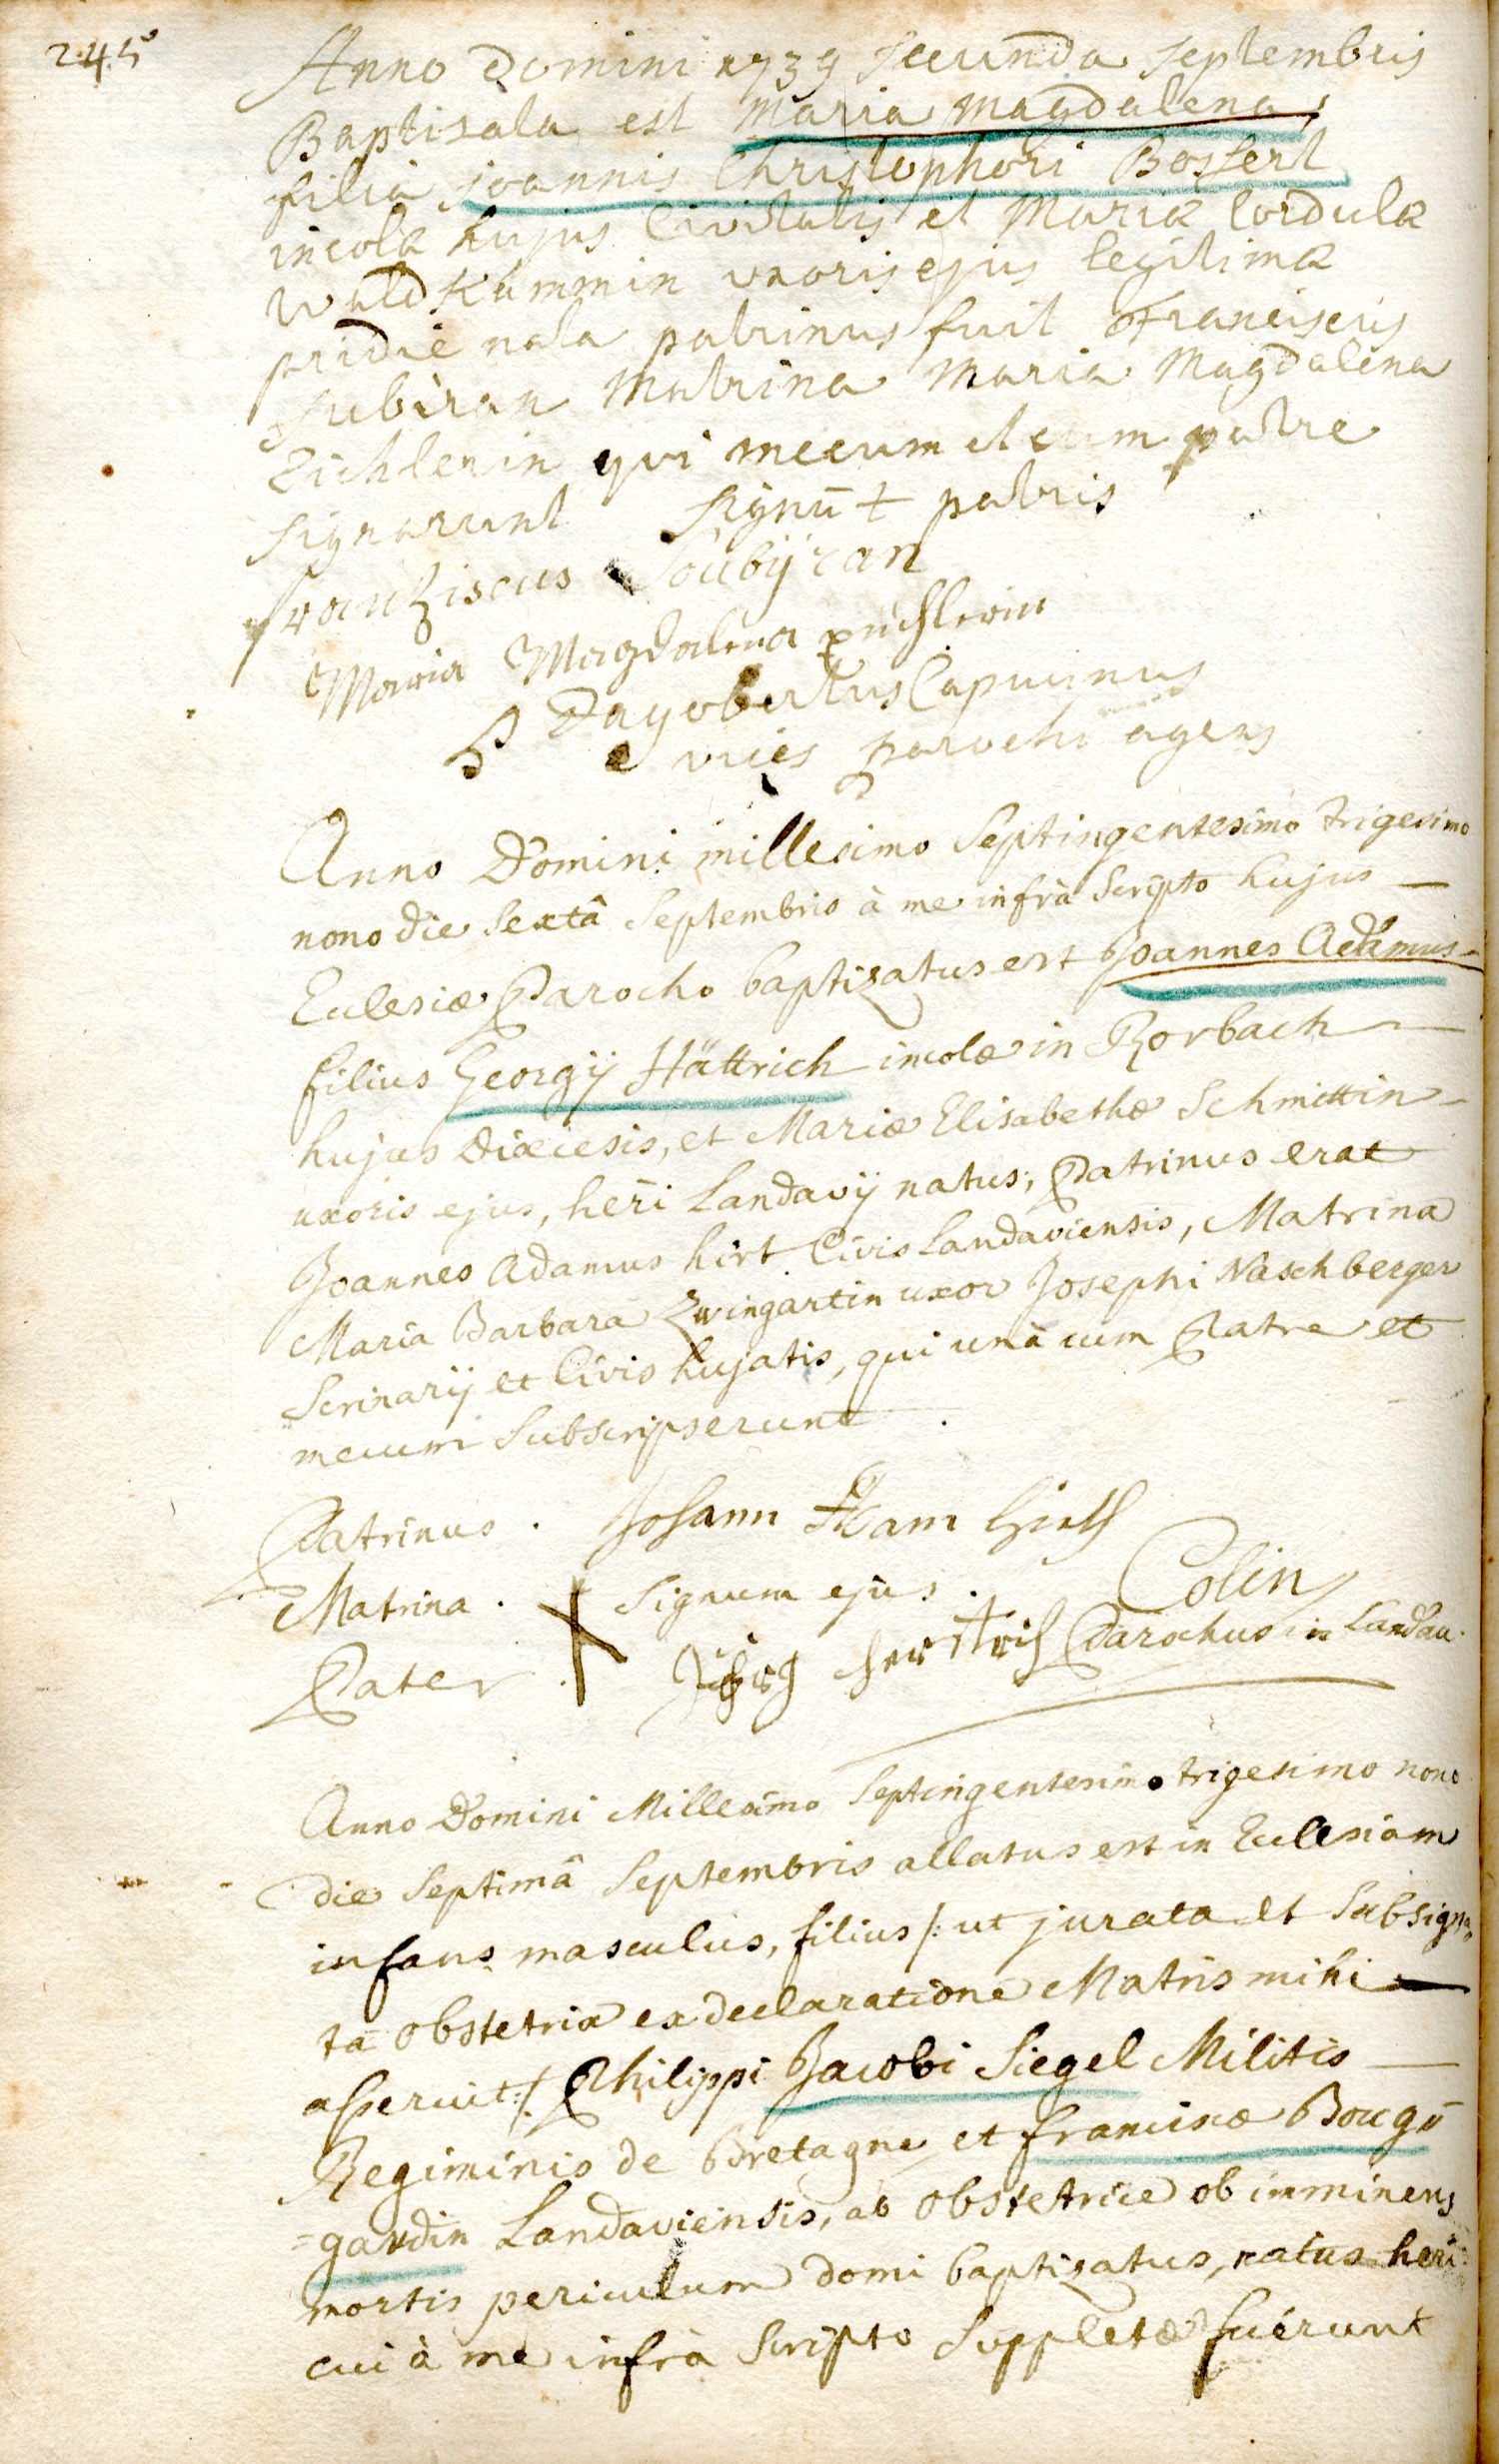 245
Anno Domini 1739 secunda septembris
Baptisata est Maria Magdalena
filia joannis Christophori Bossert
incolæ hujus Civitatis et Mariæ Cordulæ
Waldkümmin uxoris ejus legitimæ
pridie nata patrinus fuit Franciscus
subiran Matrina Maria Magdalena
Eichlerin qui mecum et cum patre
signarunt Signū + patris
frantziscus Soubÿran
Maria Magdalena
P Dagobertus Capucinus
vices parochi agens
Anno Domini millesimo Septingentesimo trigesimo
nono die Sextâ Septembris à me infrà Scripto hujus
Ecclesiæ Parocho baptizatus est Joannes Adamus
filius Georgÿ Hättrich incolæ in Rorbach
hujus Diœcesis, et Mariæ Elisabethæ Schmittin
uxoris ejus, heri Landavÿ natus; Patrinus erat
Joannes Adamus hirt Civis Landaviensis, Matrina
Maria Barbara Zwingartin uxor Josephi Naschberger
Scrinarÿ et Civis hujatis, qui unà cum Patre et
mecum Subscripserunt.
Patrinus. Johann Adam Hirth
Matrina. X Signum ejus. Colin
Pater. Parochus in Landau.
Anno Domini Millesimo Septingentesimo trigesimo nono
die Septimâ Septembris allatus est in Ecclesiam
infans masculus, filius /: ut jurata et Subsigna
ta obstetrix ex declaratione Matris mihi
asseruit :/ Philippi Jacobi Siegel Militis
Regiminis de Bretagne et franciscæ Bougÿ
=gardin Landaviensis, ab obstetrice ob imminens
mortis periculum domi baptizatus, natus heri
cui à me infrà Scripto Suppletæ fuérunt